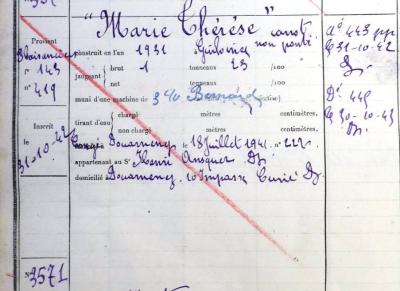 "Marie Thérèse" canot
non ponté
Provenant
Plaisanciers
n° 143
n° 419
construit en l'an 1931 à Guilvinec
jaugeant brut 1 tonneaux 23 /100
net tonneaux /100
muni d'une machine de 3 Bernard
tirant d'eau chargé mètres centimètres,
non chargé mètres centimètres,
Congé Douarnenez le 18 Juillet 1941 n° 222
appartenant au Sr Henri Ansquer Dz
domicilié à Douarnenez, 10 Impasse Curie Dz
Inscrit
le
31-10-42
N° 3571
At 448
31-10-42
Dt 449
30-10-43